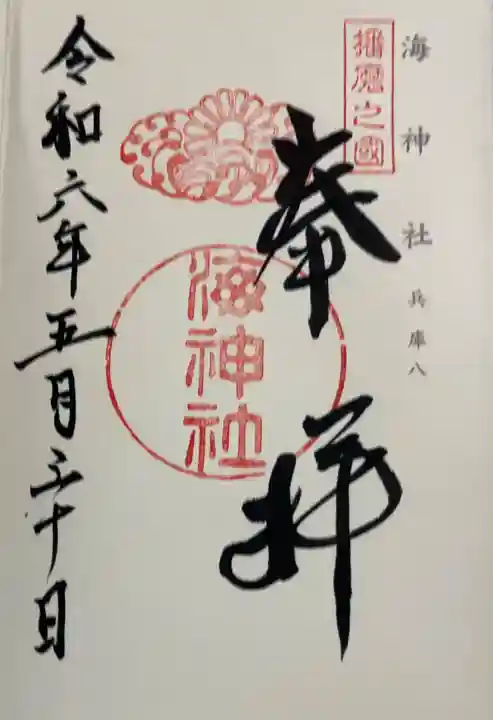 海神社 兵庫八
播磨之國
奉拝
海神社
令和六年五月三十日